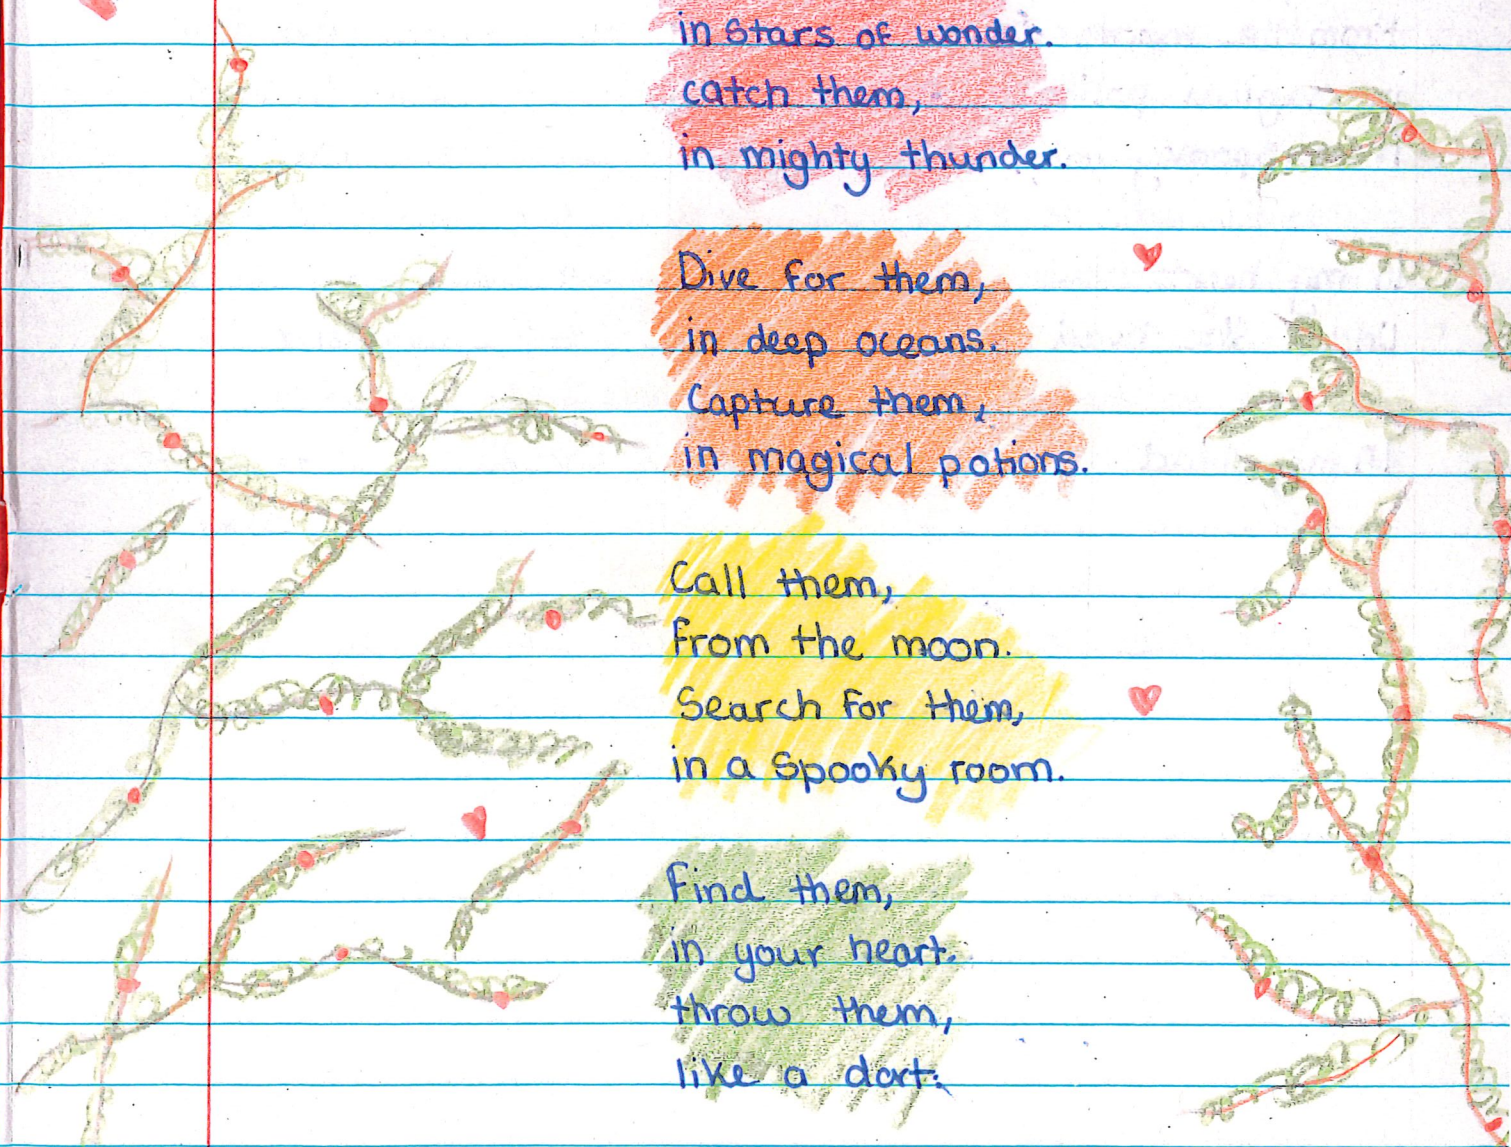 in Stars of wonder.
catch them,
in mighty thunder.
Dive for them,
in deep oceans.
Capture them,
in magical potions.
Call them,
from the moon.
Search for them,
in a Spooky room.
Find them,
in your heart.
throw them,
like a dart.